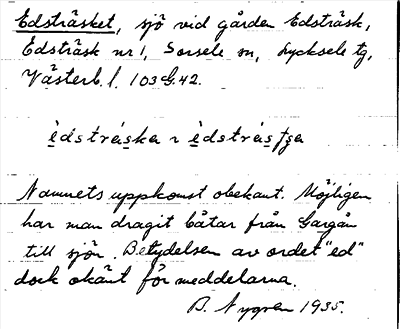 Edsträsket, sjö vid gården Edsträsk,
Edsträsk nr 1, Sorsele sn, Lycksele tg,
Västerb. l. 103 G. 42.
èdstráska ~ èdstrásʃʒa
Namnets uppkomst obekant. Möjligen
har man dragit båtar från Gargån
till sjön. Betydelsen av ordet "ed"
dock okänt för meddelarna.
B. Nygren 1935.